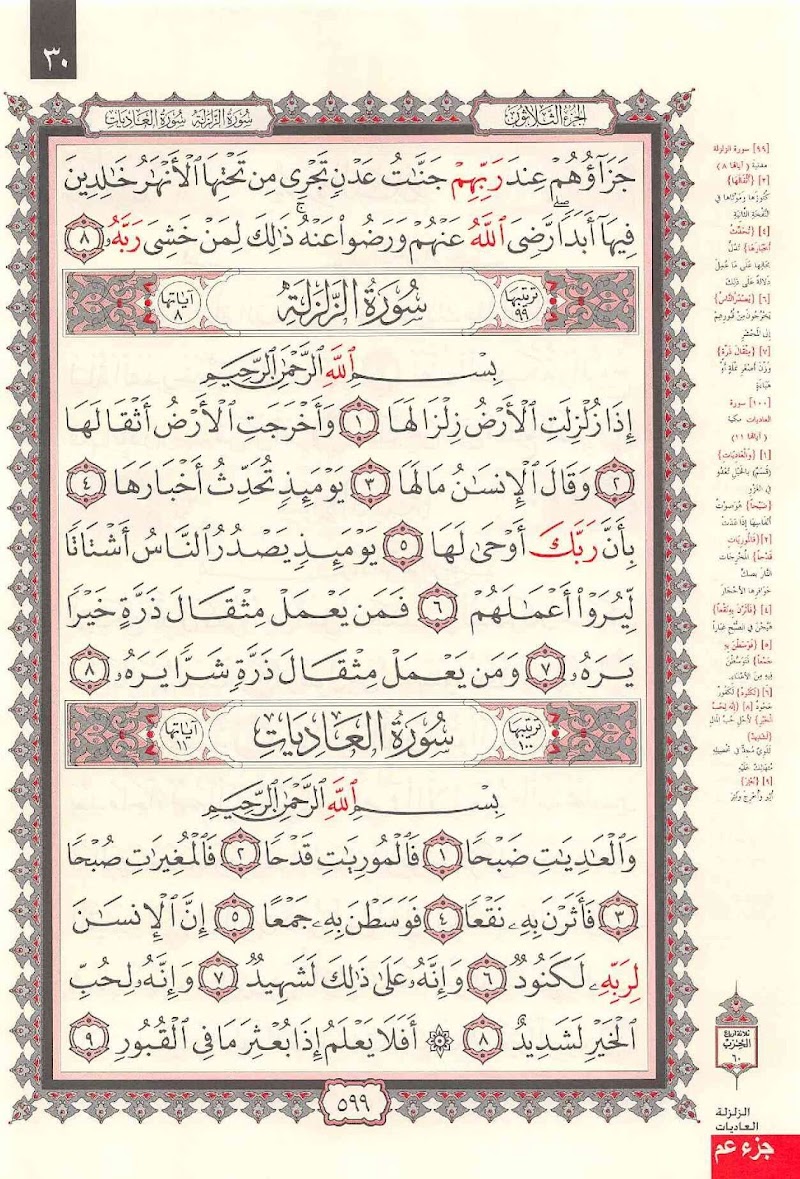 ٣٠
الجزء الثلاثون
سورة الزلزلة سورة العاديات
جَزَآؤُهُمْ عِندَ رَبِّهِمْ جَنَّـٰتُ عَدْنٍ تَجْرِى مِن تَحْتِهَا ٱلْأَنْهَـٰرُ خَـٰلِدِينَ
فِيهَآ أَبَدًا ۖ رَّضِىَ ٱللَّهُ عَنْهُمْ وَرَضُوا۟ عَنْهُ ۚ ذَٰلِكَ لِمَنْ خَشِىَ رَبَّهُۥ ٨
ترتيبها ٩٩ سورة الزلزلة آياتها ٨
بسم الله الرحمن الرحيم
إِذَا زُلْزِلَتِ ٱلْأَرْضُ زِلْزَالَهَا ١ وَأَخْرَجَتِ ٱلْأَرْضُ أَثْقَالَهَا
٢ وَقَالَ ٱلْإِنسَـٰنُ مَا لَهَا ٣ يَوْمَئِذٍ تُحَدِّثُ أَخْبَارَهَا ٤
بِأَنَّ رَبَّكَ أَوْحَىٰ لَهَا ٥ يَوْمَئِذٍ يَصْدُرُ ٱلنَّاسُ أَشْتَاتًا
لِّيُرَوْا۟ أَعْمَـٰلَهُمْ ٦ فَمَن يَعْمَلْ مِثْقَالَ ذَرَّةٍ خَيْرًا
يَرَهُۥ ٧ وَمَن يَعْمَلْ مِثْقَالَ ذَرَّةٍ شَرًّا يَرَهُۥ ٨
ترتيبها ١٠٠ سورة العاديات آياتها ١١
بسم الله الرحمن الرحيم
وَٱلْعَـٰدِيَـٰتِ ضَبْحًا ١ فَٱلْمُورِيَـٰتِ قَدْحًا ٢ فَٱلْمُغِيرَٰتِ صُبْحًا
٣ فَأَثَرْنَ بِهِۦ نَقْعًا ٤ فَوَسَطْنَ بِهِۦ جَمْعًا ٥ إِنَّ ٱلْإِنسَـٰنَ
لِرَبِّهِۦ لَكَنُودٌ ٦ وَإِنَّهُۥ عَلَىٰ ذَٰلِكَ لَشَهِيدٌ ٧ وَإِنَّهُۥ لِحُبِّ
ٱلْخَيْرِ لَشَدِيدٌ ٨ ۞ أَفَلَا يَعْلَمُ إِذَا بُعْثِرَ مَا فِى ٱلْقُبُورِ ٩
٥٩٩
[٩٩] سورة الزلزلة
مدنية (آياتها ٨)
[٢] {أثقالها}
كنوزها وموتاها في
النفخة الثانية
[٤] {تحدث
أخبارها} تدل
بحالها على ما عمل
[٦] {يصدر الناس}
يخرجون من قبورهم
إلى المحشر
[٧] {مثقال ذرة}
وزن أصغر نملة أو
هباءة
[١٠٠] سورة
العاديات مكية
(آياتها ١١)
[١] {والعاديات}
(قسم) بالخيل تعدو
في الغزو
{ضبحا} هو صوت
أنفاسها إذا عدت
[٢] {فالموريات
قدحا} المخرجات
النار بصك
حوافرها الأحجار
[٤] {فأثرن به نقعا}
هيجن في الصبح غبارا
[٥] {فوسطن به
جمعا} فتوسطن
فيه من الأعداء
[٦] {لكنود} لكفور
جحود [٨] {إنه لحب
الخير} لأجل حب المال
{لشديد}
لقوي مجد في تحصيله
متهالك عليه
[٩] {بعثر}
أثير وأخرج ونثر
ثلاثة أرباع
الحزب
٦٠
الزلزلة
العاديات
جزء عم